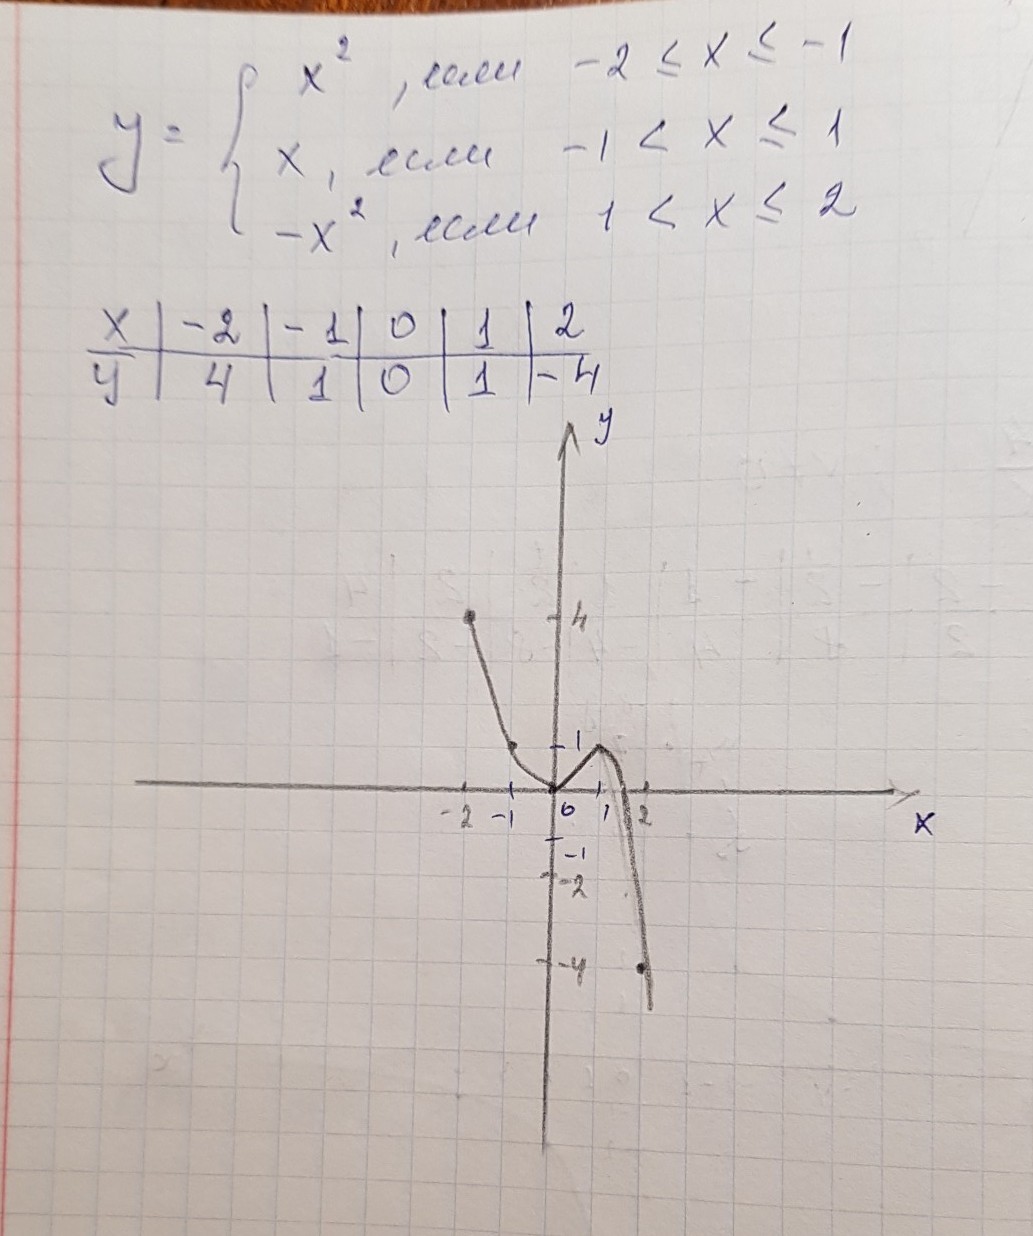 y = { x², если -2 ≤ x ≤ -1
x, если -1 < x ≤ 1
-x², если 1 < x ≤ 2
x | -2 | -1 | 0 | 1 | 2
y | 4 | 1 | 0 | 1 | -4
y
4
1
-2 -1 0 1 2
x
-1
-2
-4